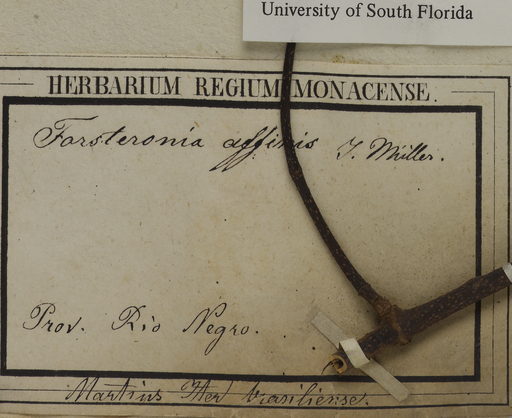 University of South Florida
HERBARIUM REGIUM MONACENSE.
Forsteronia affinis J. Müller.
Prov. Rio Negro.
Martius Iter brasiliense.